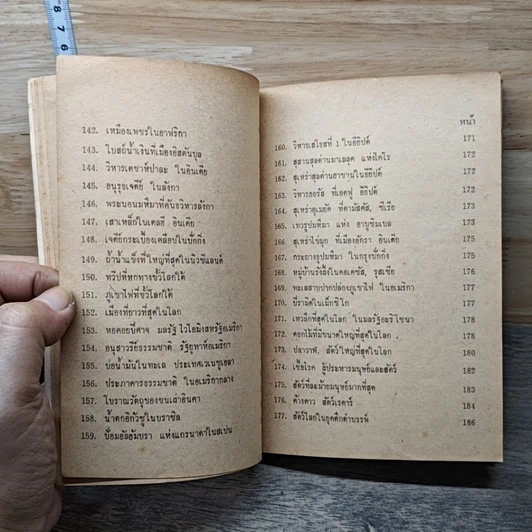 8
7
6
142. เหมืองเพชรในอาฟริกา
143. โบสถ์น้ำเงินที่เมืองอิสตันบุล
144. วิหารเดชาห์ปาละ ในอินเดีย
145. อนุรุธเจดีย์ ในลังกา
146. พระนอนมหึมาที่คันธวิหารลังกา
147. เสาเหล็กในเดลฮี อินเดีย
148. เจดีย์กระเบื้องเคลือบในปักกิ่ง
149. ถ้ำน้ำแข็งที่ใหญ่ที่สุดในนิวซีแลนด์
150. ทวีปที่หกทางขั้วโลกใต้
151. ภูเขาไฟที่ขั้วโลกใต้
152. เมืองที่ยาวที่สุดในโลก
153. หอคอยปีศาจ มลรัฐไวโอมิงสหรัฐอเมริกา
154. อนุสาวรีย์ธรรมชาติ รัฐยูทาห์อเมริกา
155. บ่อน้ำมันในทะเล ประเทศเวเนซูเอลา
156. ประภาคารธรรมชาติ ในอเมริกากลาง
157. โบราณวัตถุของชนเผ่าอินคา
158. น้ำตกอิกัวซูในบราซิล
159. ป้อมอัลฮัมบรา แห่งแกรนาดาในสเปน
หน้า
160. วิหารเสโธสที่ 1 ในอียิปต์ 171
161. สุสานสุลต่านมาเลลุค แห่งไคโร 172
162. สุเหร่าสุลต่านฮาซานในอียิปต์ 172
163. วิหารฮอรัส ที่เอดฟู อียิปต์ 172
164. สุเหร่าอุเมยัด ที่ดามัสคัส, ซีเรีย 173
165. เทวรูปมหึมา แห่ง อาบูซิมเบล 173
166. สุเหร่าไข่มุก ที่เมืองอักรา อินเดีย 175
167. กระถางธูปมหึมา ในกรุงปักกิ่ง 175
168. หมู่บ้านรังผึ้งในคอเคซัส, รุสเซีย 175
169. ทะเลสาบปากปล่องภูเขาไฟ ในอเมริกา 175
170. ปิรามิดในเม็กซิโก 175
171. เหวลึกที่สุดในโลก ในมลรัฐอะริโซนา 175
172. ดอกไม้ที่มีขนาดใหญ่ที่สุดในโลก 180
173. ปลาวาฬ, สัตว์ใหญ่ที่สุดในโลก 180
174. เชื้อโรค ผู้ประหารมนุษย์และสัตว์ 182
175. สัตว์ที่คล้ายมนุษย์มากที่สุด 183
176. ค้างคาว สัตว์เรดาร์ 184
177. สัตว์โลกในยุคดึกดำบรรพ์ 186